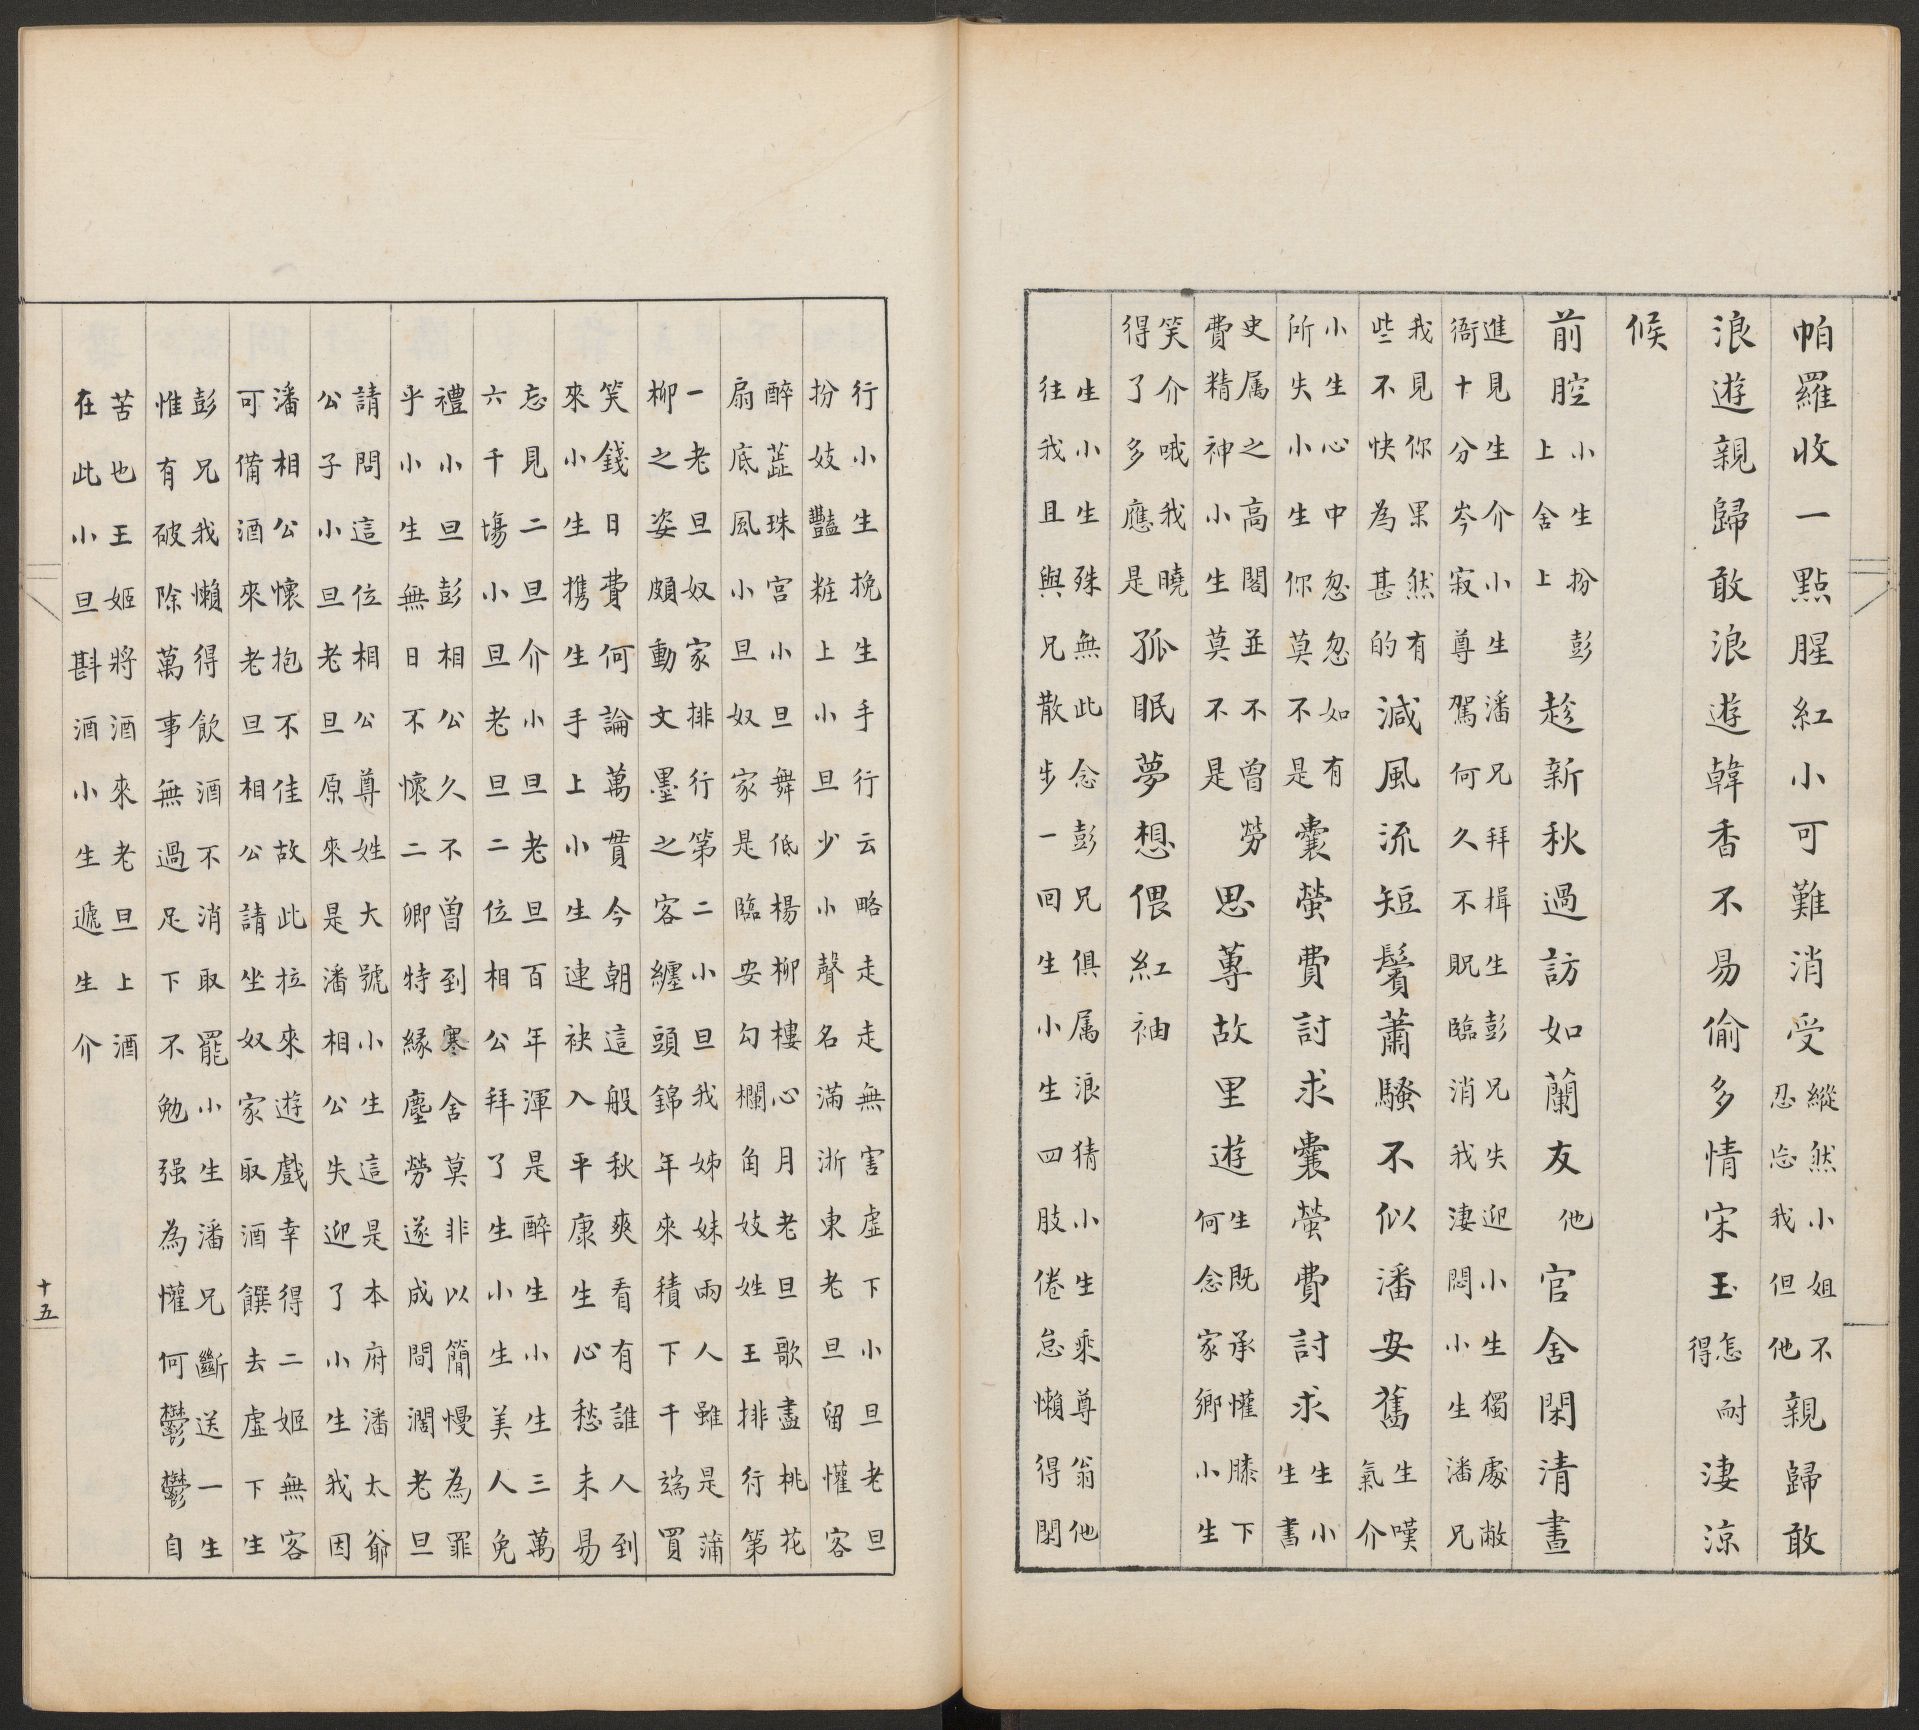 帕羅收一點腥紅小可難消受縱然小姐不忍忘我但他親歸敢
浪遊親歸敢浪遊韓香不易偷多情宋玉怎得耐淒涼
候
前腔小生扮彭上舍上趁新秋過訪如蘭友他官舍閑清晝
進見生介小生潘兄拜揖生彭兄失迎小生獨處敝
衙十分岑寂尊駕何久不貺臨消我淒悶小生潘兄
我見你果然有
些不快為甚的減風流短鬢蕭騷不似潘安舊生嘆氣介
小生心中忽忽如有
所失小生你莫不是囊螢費討求囊螢費討求生小生書
史属之高閣並不曾
費精神小生莫不是勞思蓴故里遊生既承懽膝下何念家鄉小生
笑介哦我曉
得了多應是孤眠夢想偎紅袖
生小生殊無此念彭兄俱属浪猜小生乘尊翁他
往我且與兄散步一回生小生四肢倦怠懶得閑
行小生挽生手行云略走走無害虛下小旦老旦
扮妓豔粧上小旦少小聲名滿浙東老旦留懽客
醉蕋珠宮小旦舞低楊柳樓心月老旦歌盡桃花
扇底風小旦奴家是臨安勾欄角妓姓王排行第
一老旦奴家排行第二小旦我姊妹兩人雖是蒲
柳之姿頗動文墨之客纏頭錦年來積下千端買
笑錢日費何論萬貫今朝這般秋爽看有誰人到
來小生携生手上小生連袂入平康生心愁未易
忘見二旦介小旦老旦百年渾是醉生小生三萬
六千塲小旦老旦二位相公拜了生小生美人免
禮小旦彭相公久不曾到寒舍莫非以簡慢為罪
乎小生無日不懷二卿特緣塵勞遂成間濶老旦
請問這位相公尊姓大號小生這是本府潘太爺
公子小旦老旦原來是潘相公失迎了小生我因
潘相公懷抱不佳故此拉來遊戲幸得二姬無客
可備酒來老旦相公請坐奴家取酒饌去虛下生
彭兄我懶得飲酒不消取罷小生潘兄斷送一生
惟有破除萬事無過足下不勉强為懽何鬱鬱自
苦也王姬將酒來老旦上酒
在此小旦斟酒小生遞生介
十五